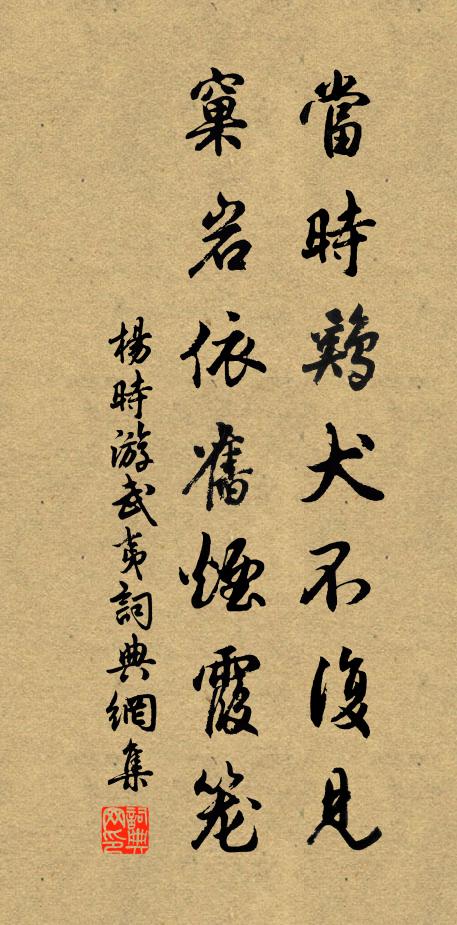 當時鷄犬不復見
窠岩依舊煙霞笼
楊時游武夷詞典網集
詞典網印